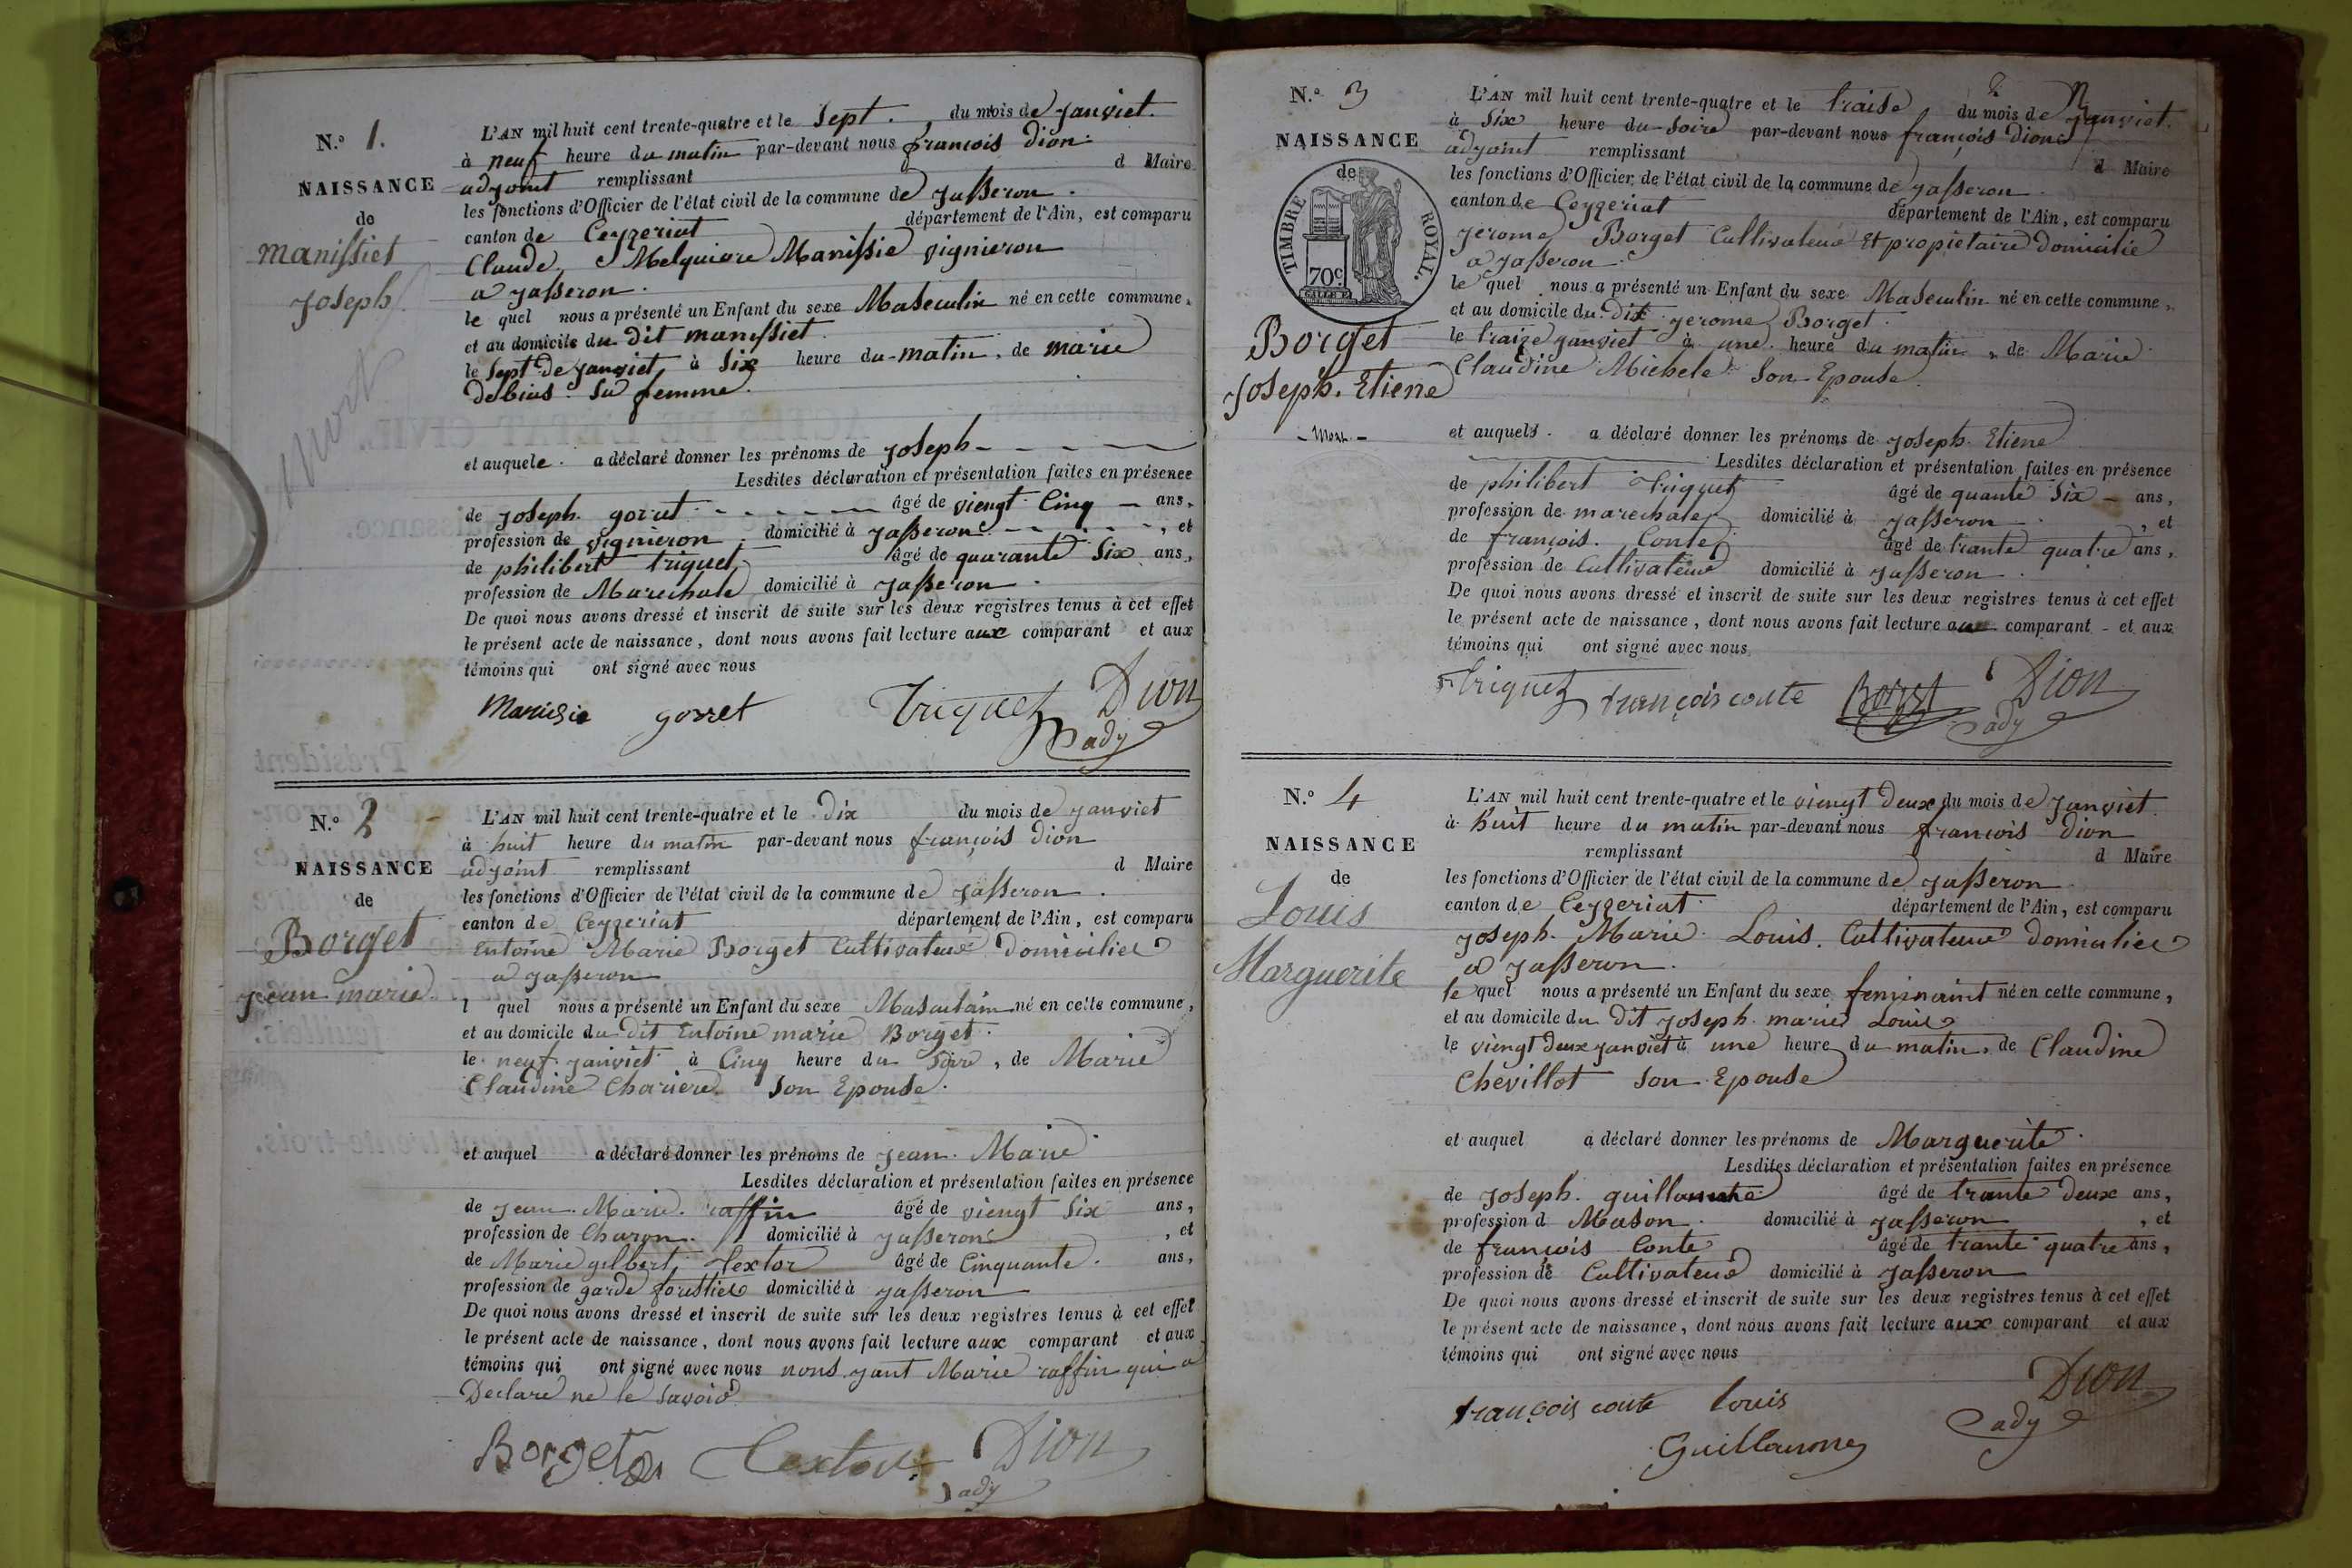 N.º 1.
NAISSANCE
de
manissiet
Joseph
mort
L'AN mil huit cent trente-quatre et le sept. du mois de Janviet.
à neuf heure du matin par-devant nous françois Dion
adjoint remplissant d Maire
les fonctions d'Officier de l'état civil de la commune de Jasseron.
canton de Ceyzeriat département de l'Ain, est comparu
Claude Melquiore Manissie vignieron
a Jasseron.
le quel nous a présenté un Enfant du sexe Masculin né en cette commune,
et au domicile du dit manissiet
le sept de Janviet à six heure du matin, de marie
debias sa femme
et auquele. a déclaré donner les prénoms de Joseph
Lesdites déclaration et présentation faites en présence
de Joseph gorat âgé de viengt Cinq ans,
profession de vignieron, domicilié à Jasseron, et
de philibert triquet âgé de quarante Six ans,
profession de Marechale domicilié à Jasseron.
De quoi nous avons dressé et inscrit de suite sur les deux registres tenus à cet effet
le présent acte de naissance, dont nous avons fait lecture aux comparant et aux
témoins qui ont signé avec nous
Manisie gorret Triquet Dion
ady
N.º 2
NAISSANCE
de
Borget
Jean marie
L'AN mil huit cent trente-quatre et le Dix du mois de Janviet
à huit heure du matin par-devant nous françois Dion
adjoint remplissant d Maire
les fonctions d'Officier de l'état civil de la commune de Jasseron.
canton de Ceyzeriat département de l'Ain, est comparu
Entoine Marie Borget Cultivateur Domicilier
a Jasseron
l quel nous a présenté un Enfant du sexe Masculain né en cette commune,
et au domicile du dit Entoine marie Borget.
le neuf Janviet à Cinq heure du Soire, de Marie
Claudine Chariere Son Epouse.
et auquel a déclaré donner les prénoms de Jean Marie
Lesdites déclaration et présentation faites en présence
de Jean Marie raffin âgé de viengt Six ans,
profession de Charon. domicilié à Jasseron, et
de Marie gilbert Textor âgé de Cinquante. ans,
profession de garde forestier domicilié à Jasseron
De quoi nous avons dressé et inscrit de suite sur les deux registres tenus à cet effet
le présent acte de naissance, dont nous avons fait lecture aux comparant et aux
témoins qui ont signé avec nous nons jant Marie raffin qui a
Declare ne le savoir
Borget Textor Dion
ady
2
N.º 3
NAISSANCE
de
TIMBRE ROYAL.
70c.
Borget
Joseph. Etiene
mort
L'AN mil huit cent trente-quatre et le traise du mois de Janviet.
à Six heure du soire par-devant nous françois Dion
adjoint remplissant d Maire
les fonctions d'Officier de l'état civil de la commune de Jasseron
canton de Ceyzeriat département de l'Ain, est comparu
Jerome Borget Cultivateur Et propietaire Domicilie
a Jasseron.
le quel nous a présenté un Enfant du sexe Masculin né en cette commune,
et au domicile du Dit Jerome Borget.
le traize Janviet à une heure du matin, de Marie
Claudine Michele Son Epouse
et auquels. a déclaré donner les prénoms de Joseph Etiene
Lesdites déclaration et présentation faites en présence
de philibert triquet âgé de quante Six ans,
profession de marechale domicilié à Jasseron, et
de françois. Conte âgé de trante quatre ans,
profession de Cultivateur domicilié à Jasseron.
De quoi nous avons dressé et inscrit de suite sur les deux registres tenus à cet effet
le présent acte de naissance, dont nous avons fait lecture aux comparant et aux
témoins qui ont signé avec nous
Triquet françois conte Borget Dion
ady
N.º 4
NAISSANCE
de
Louis
Marguerite
L'AN mil huit cent trente-quatre et le viengt Deux du mois de Janviet.
à huit heure du matin par-devant nous françois Dion
remplissant d Maire
les fonctions d'Officier de l'état civil de la commune de Jasseron
canton de Ceyzeriat département de l'Ain, est comparu
Joseph Marie Louis. Cultivateur domicilier
a Jasseron.
le quel nous a présenté un Enfant du sexe feminaint né en cette commune,
et au domicile du Dit Joseph marie Louis
le viengt deux Janviet à une heure du matin, de Claudine
Chevillot Son Epouse
et auquel a déclaré donner les prénoms de Marguerite.
Lesdites déclaration et présentation faites en présence
de Joseph. guillaume âgé de trante deux ans,
profession d Mason. domicilié à Jasseron, et
de françois Conte âgé de trante quatre ans,
profession de Cultivateur domicilié à Jasseron
De quoi nous avons dressé et inscrit de suite sur les deux registres tenus à cet effet
le présent acte de naissance, dont nous avons fait lecture aux comparant et aux
témoins qui ont signé avec nous
françois conte Louis Dion
Guillaume ady